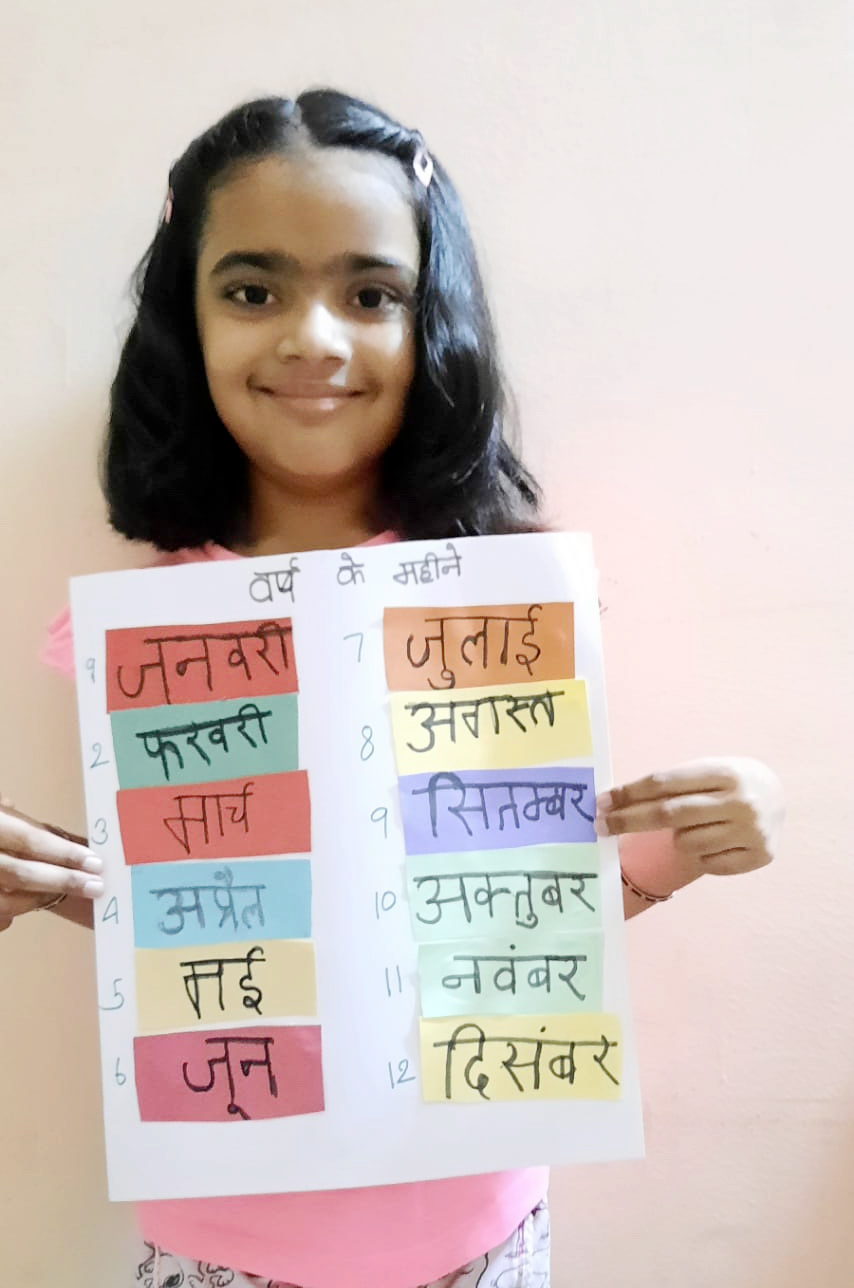 वर्ष के महीने
1 जनवरी
2 फरवरी
3 मार्च
4 अप्रैल
5 मई
6 जून
7 जुलाई
8 अगस्त
9 सितम्बर
10 अक्तुबर
11 नवंबर
12 दिसंबर